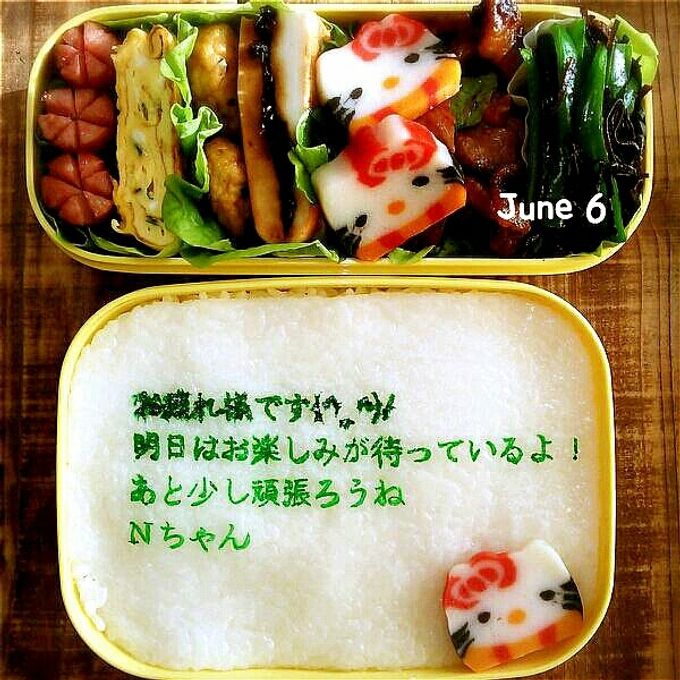 June 6
お疲れ様です(^_^)/
明日はお楽しみが待っているよ！
あと少し頑張ろうね
Nちゃん